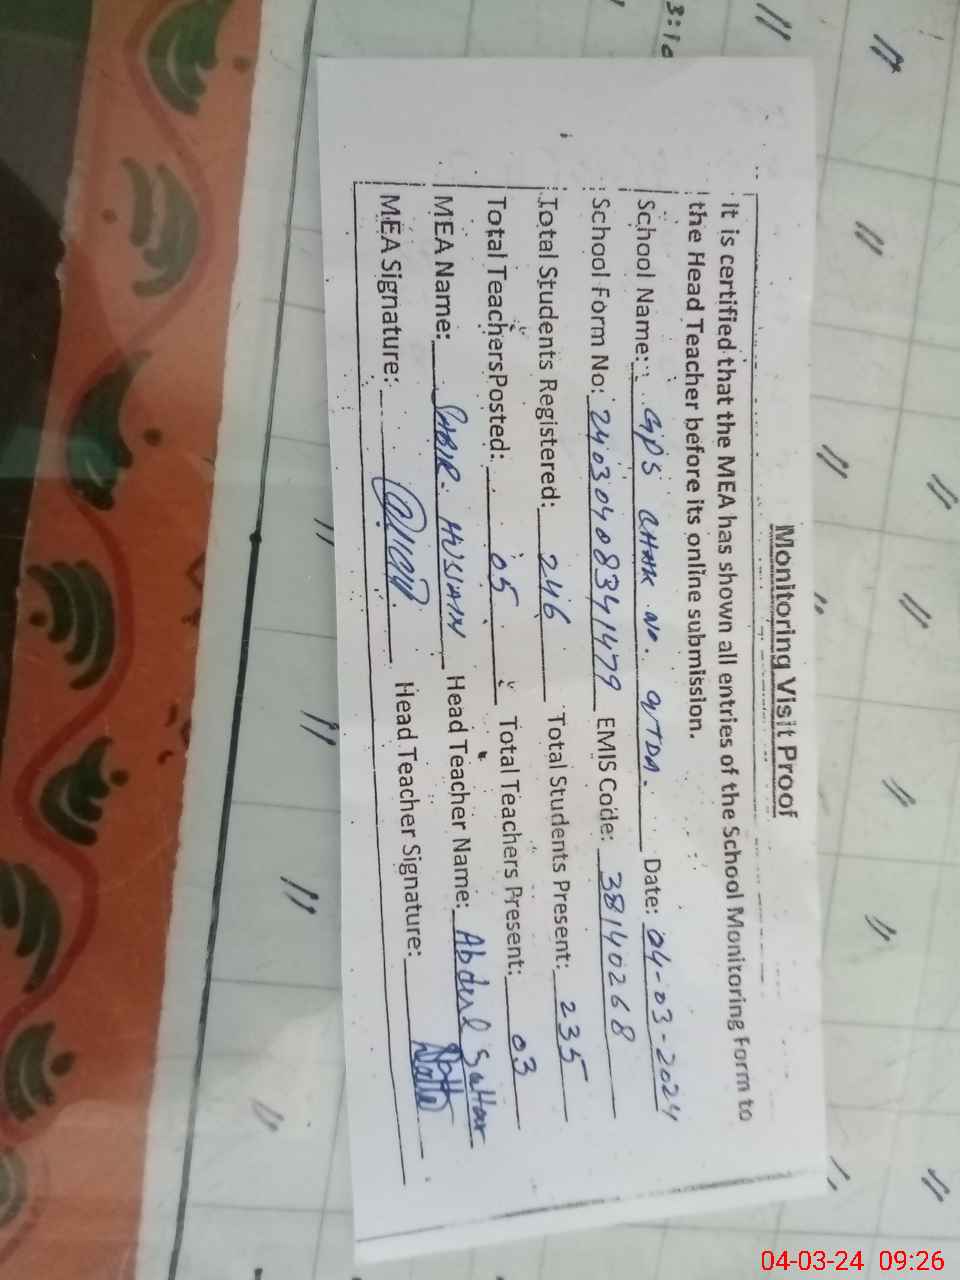 Monitoring Visit Proof
It is certified that the MEA has shown all entries of the School Monitoring Form to
the Head Teacher before its online submission.
School Name: GPS CHAK NO. 9/TDA. Date: 04-03-2024
School Form No: 24030408341479 EMIS Code: 38140268
Total Students Registered: 246 Total Students Present: 235
Total Teachers Posted: 05 Total Teachers Present: 03
MEA Name: SABIR HUSSAIN Head Teacher Name: Abdul Sattar
MEA Signature: Head Teacher Signature:
04-03-24 09:26